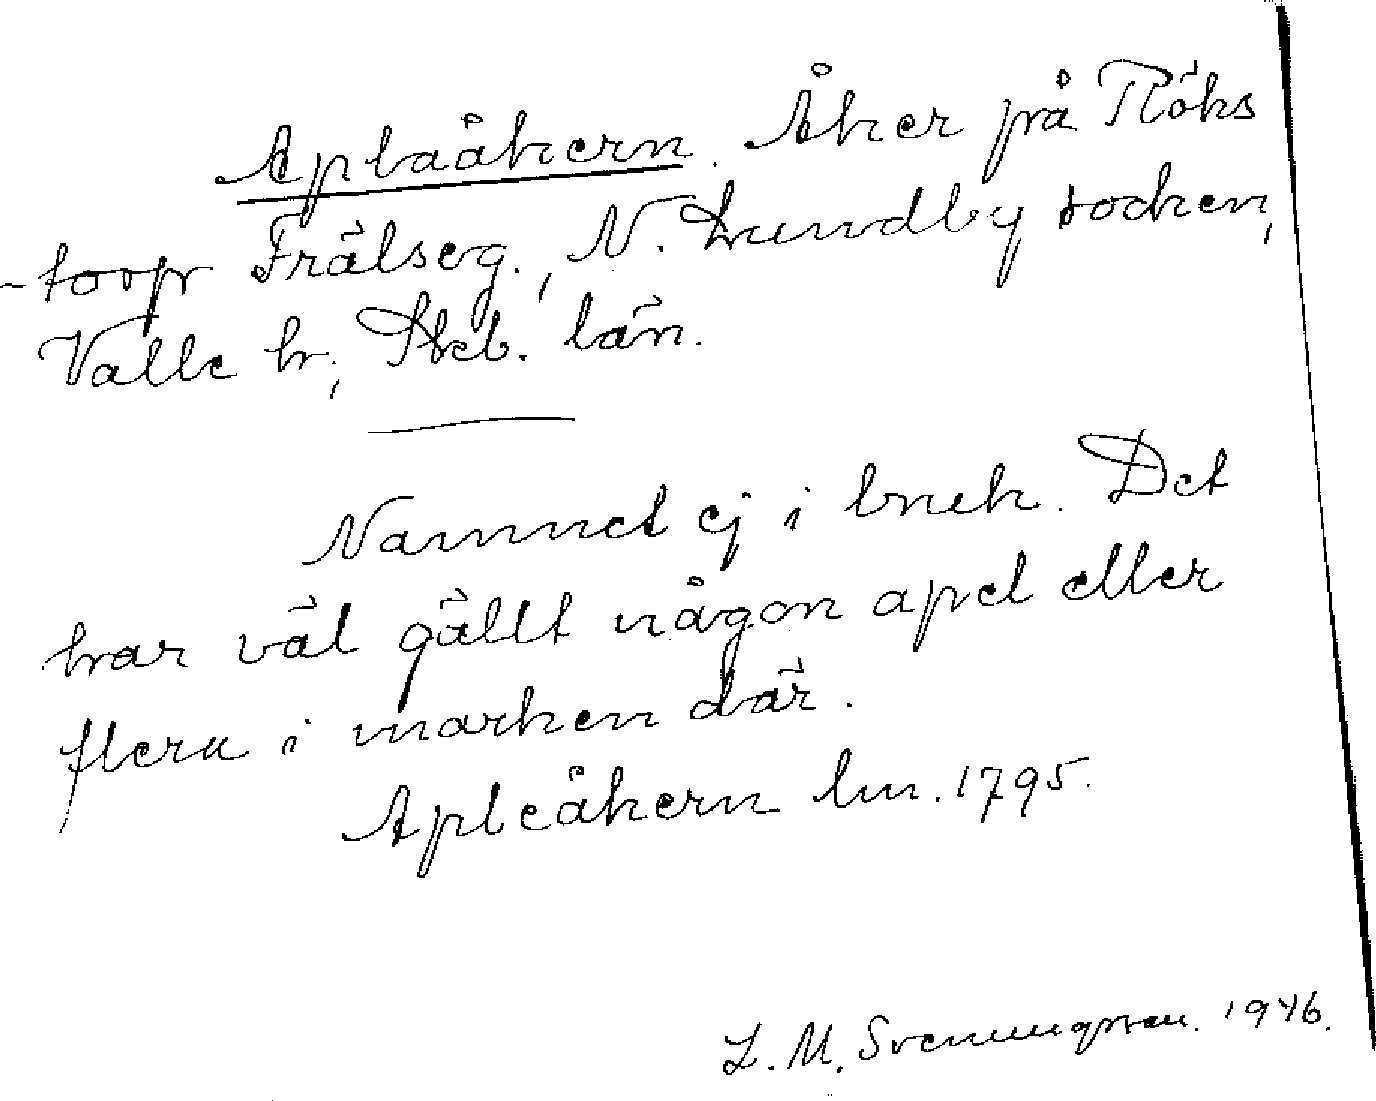 Aplaåkern. Åker på Röks
-torp Frälseg., N. Lundby socken,
Valle hr, Skb. län.
Namnet ej i bruk. Det
har väl gällt någon apel eller
flera i marken där.
Apleåkern lm. 1795.
L. M. Svenungsson. 1946.